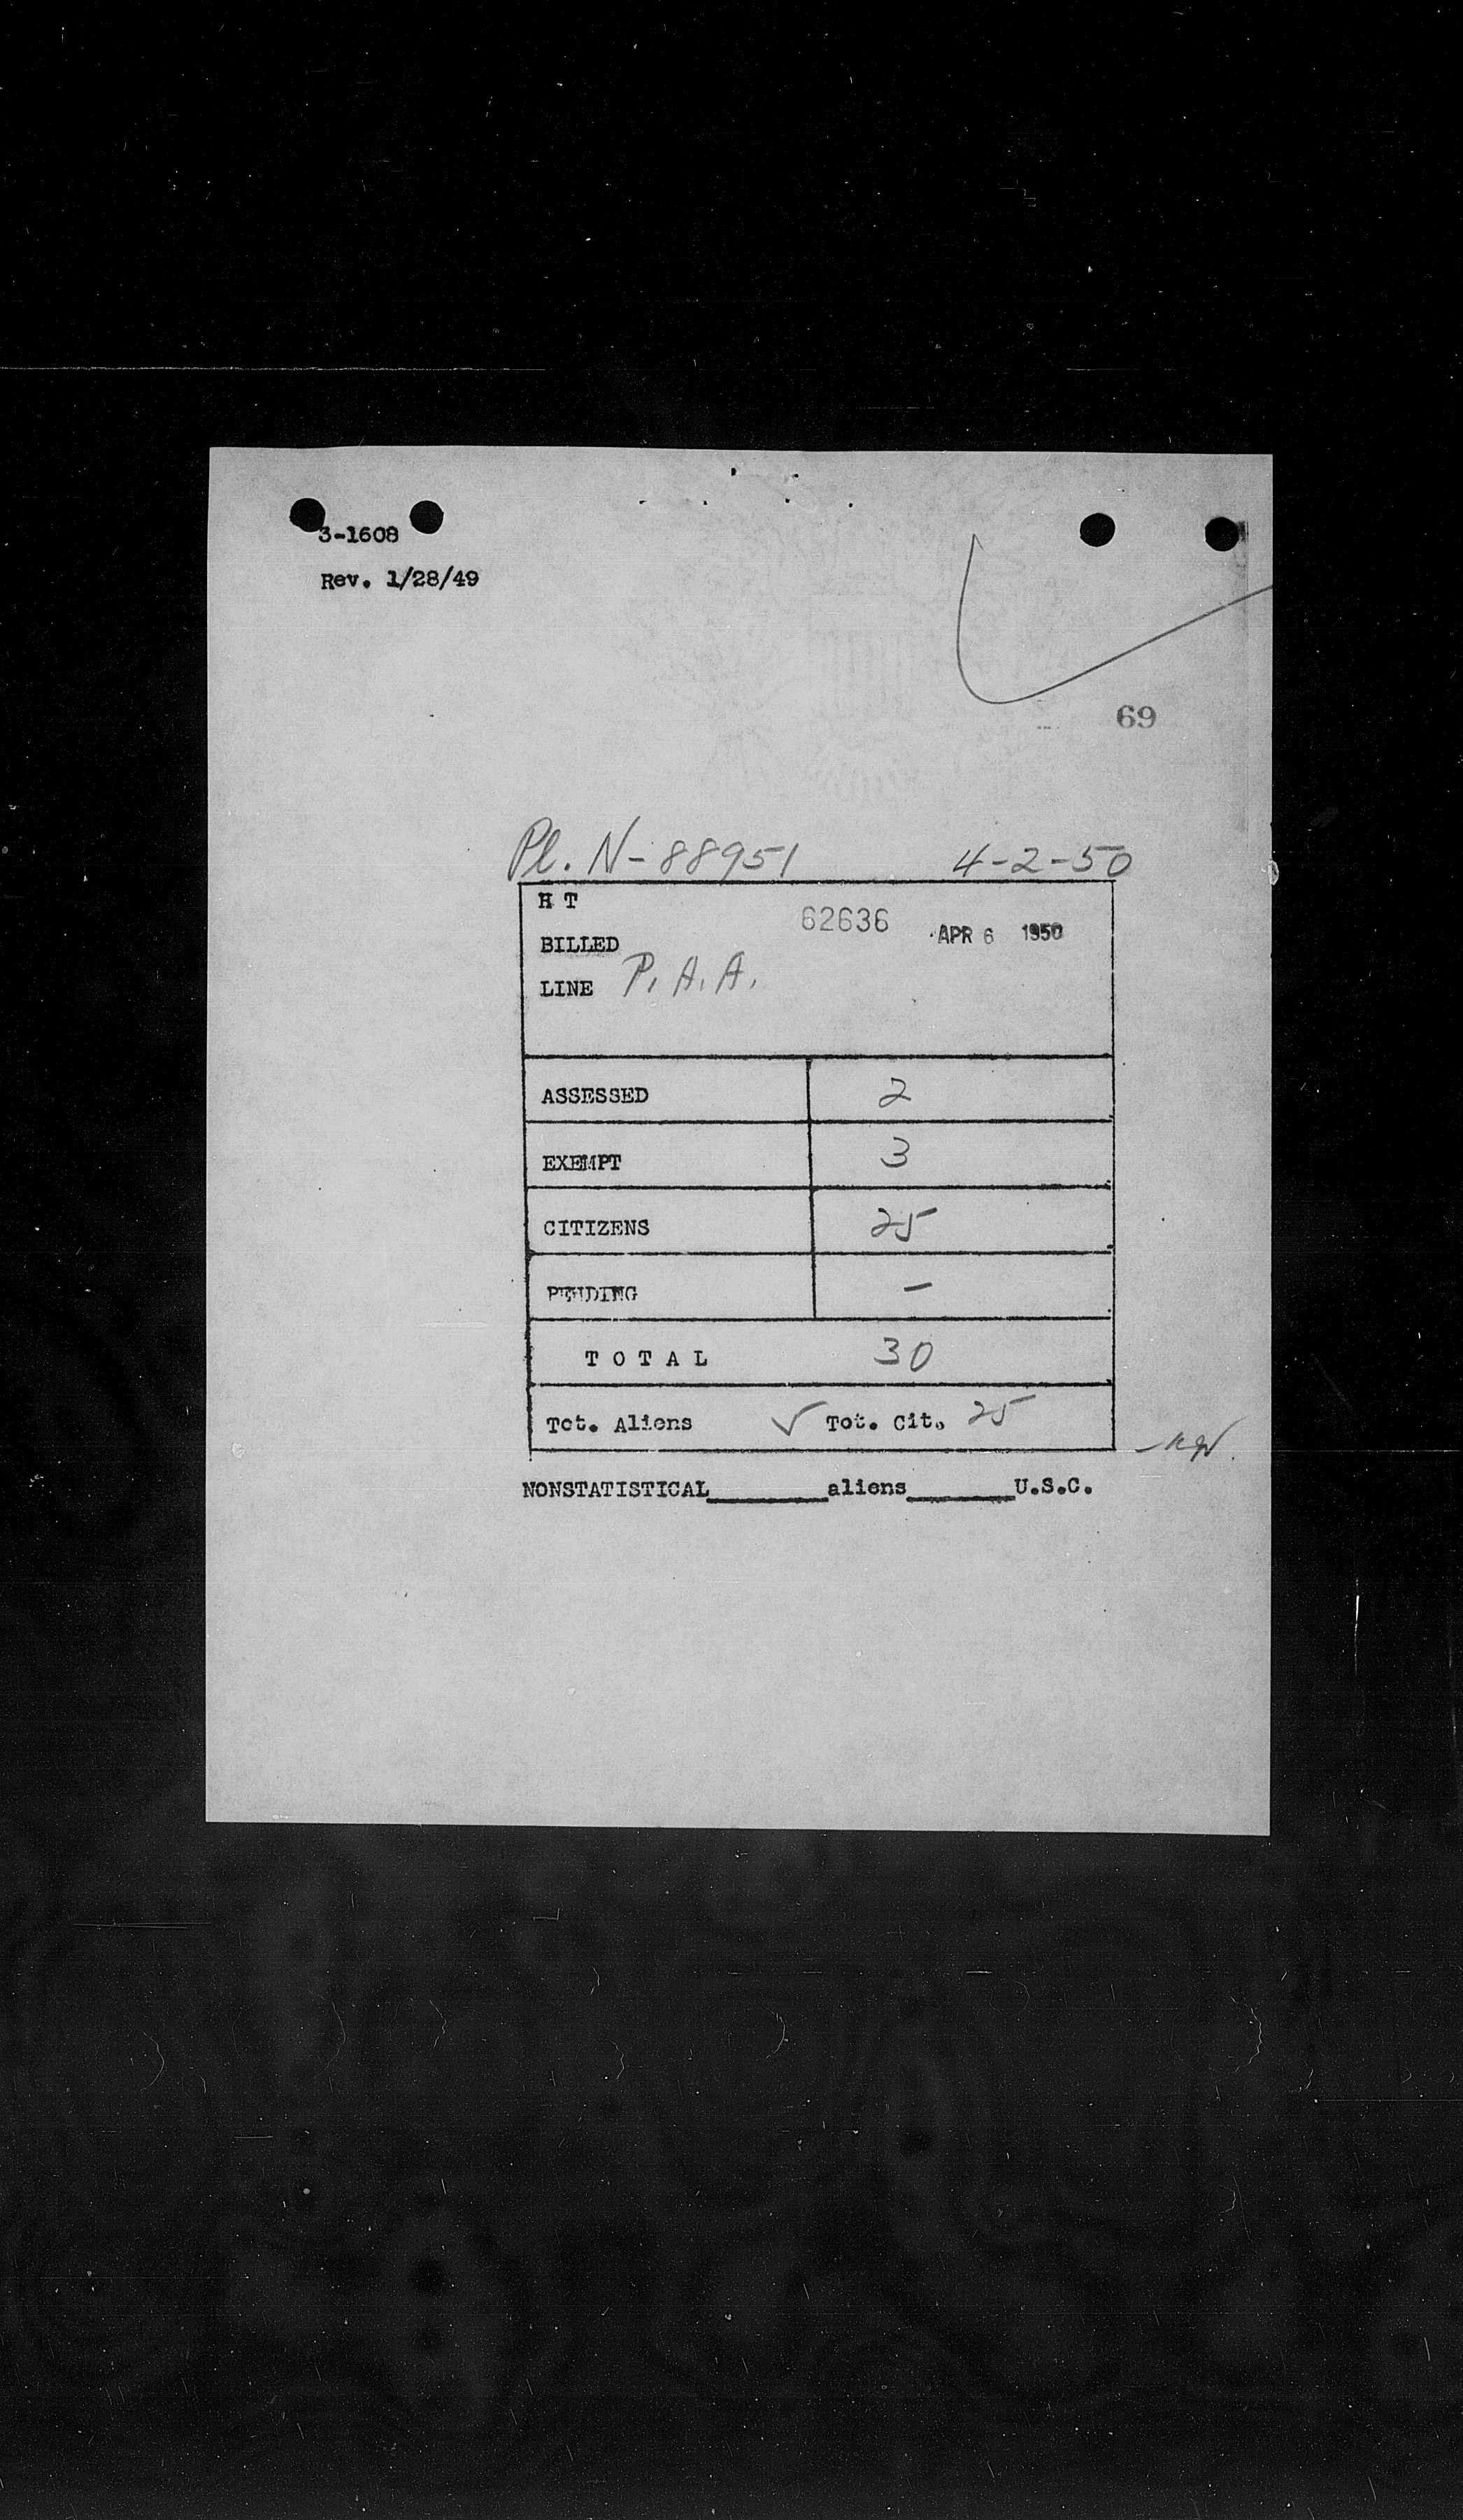 3-1608
Rev. 1/28/49
69
Pl. N-88951 4-2-50
H T
62636 APR 6 1950
BILLED
LINE P. A. A.
ASSESSED 2
EXEMPT 3
CITIZENS 25
PENDING –
T O T A L 30
Tot. Aliens Tot. Cit. 25
NONSTATISTICAL________aliens_______U.S.C.